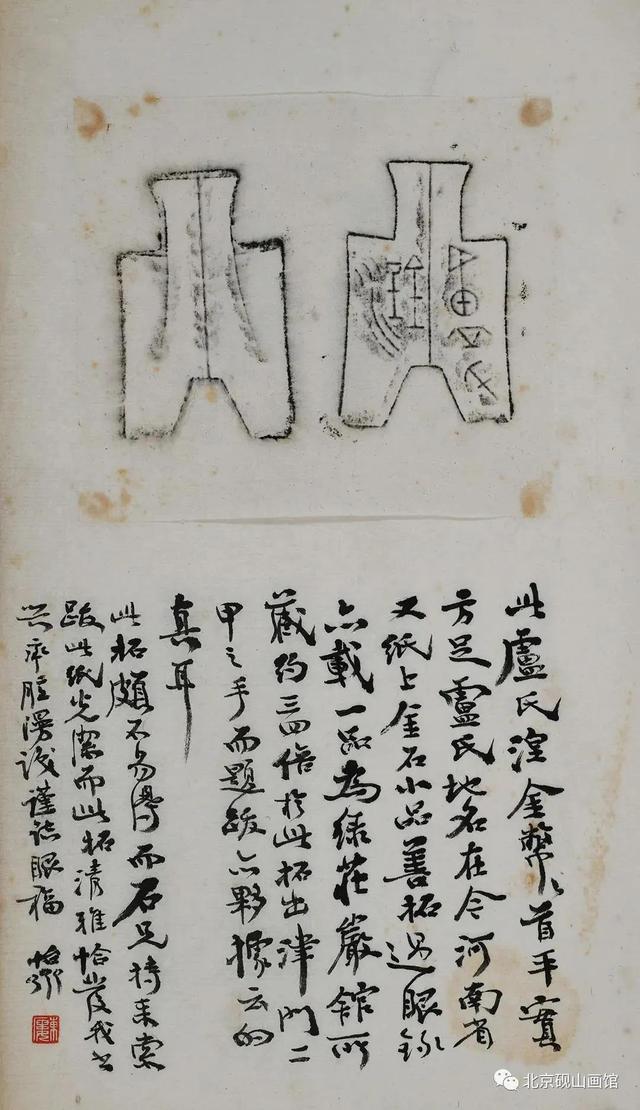 此盧氏涅金幣幣首平實
方足盧氏地名在今河南省
又紙上金石小品善拓過眼錄
亦載一品為綠莊嚴館所
藏約三四倍於此拓出津門二
甲之手而題跋亦夥據云的
真耳
此拓頗不易得而石兄持來索
跋此紙光潔而此拓清雅恰發我書
興率臆漫識謹誌眼福
北京砚山画馆